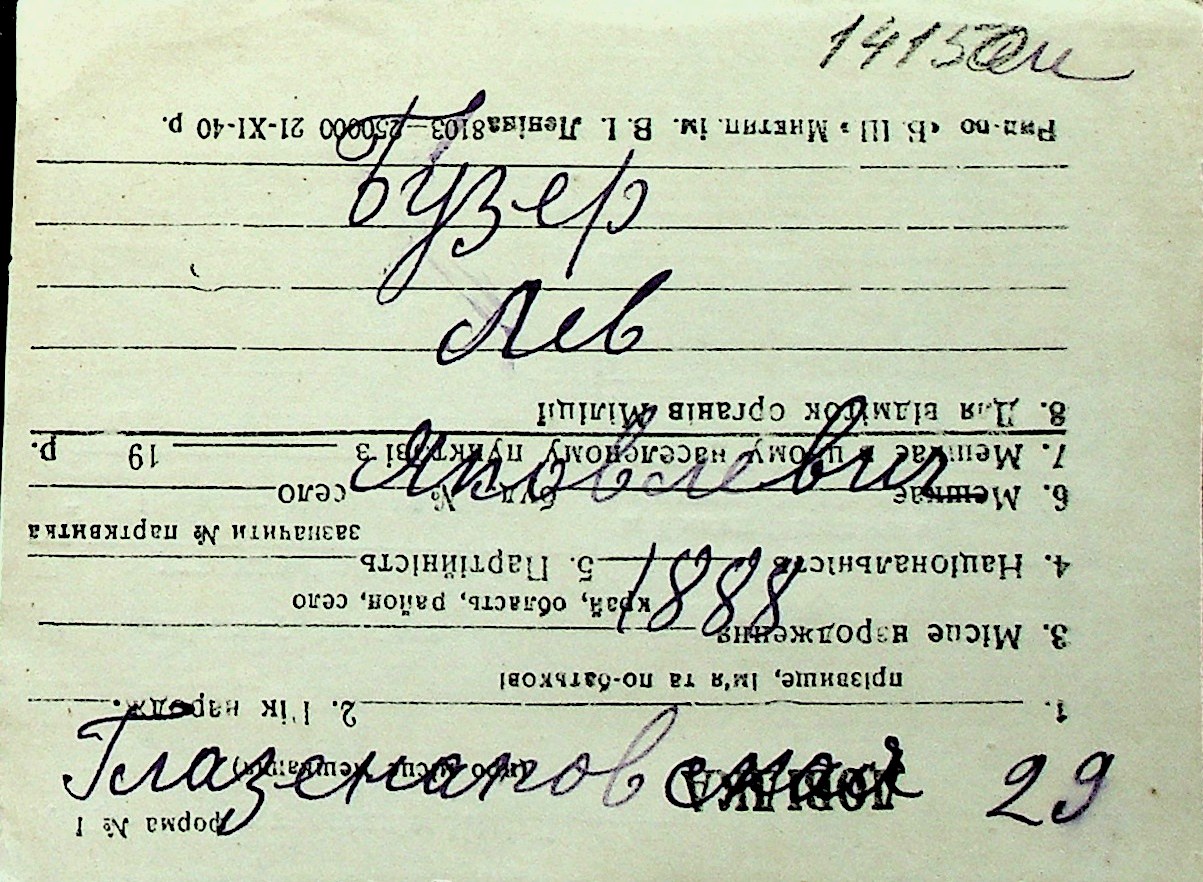 1415
Бузер
Лев
Яковлевич
1888
Глазенаповская 29
форма № 1
ДОВІДКА
(про місце мешкання)
1. 2. Рік народж.
прізвище, ім'я та по-батькові
3. Місце народження
край, область, район, село
4. Національність 5. Партійність
зазначити № партквитка
6. Мешкає буд. № село
7. Мешкає в цьому населеному пункті з 19 р.
8. Для відміток органів Міліції
«Б. Ш» ім. В. І. Леніна 8103—250000 21-XI-40 р.